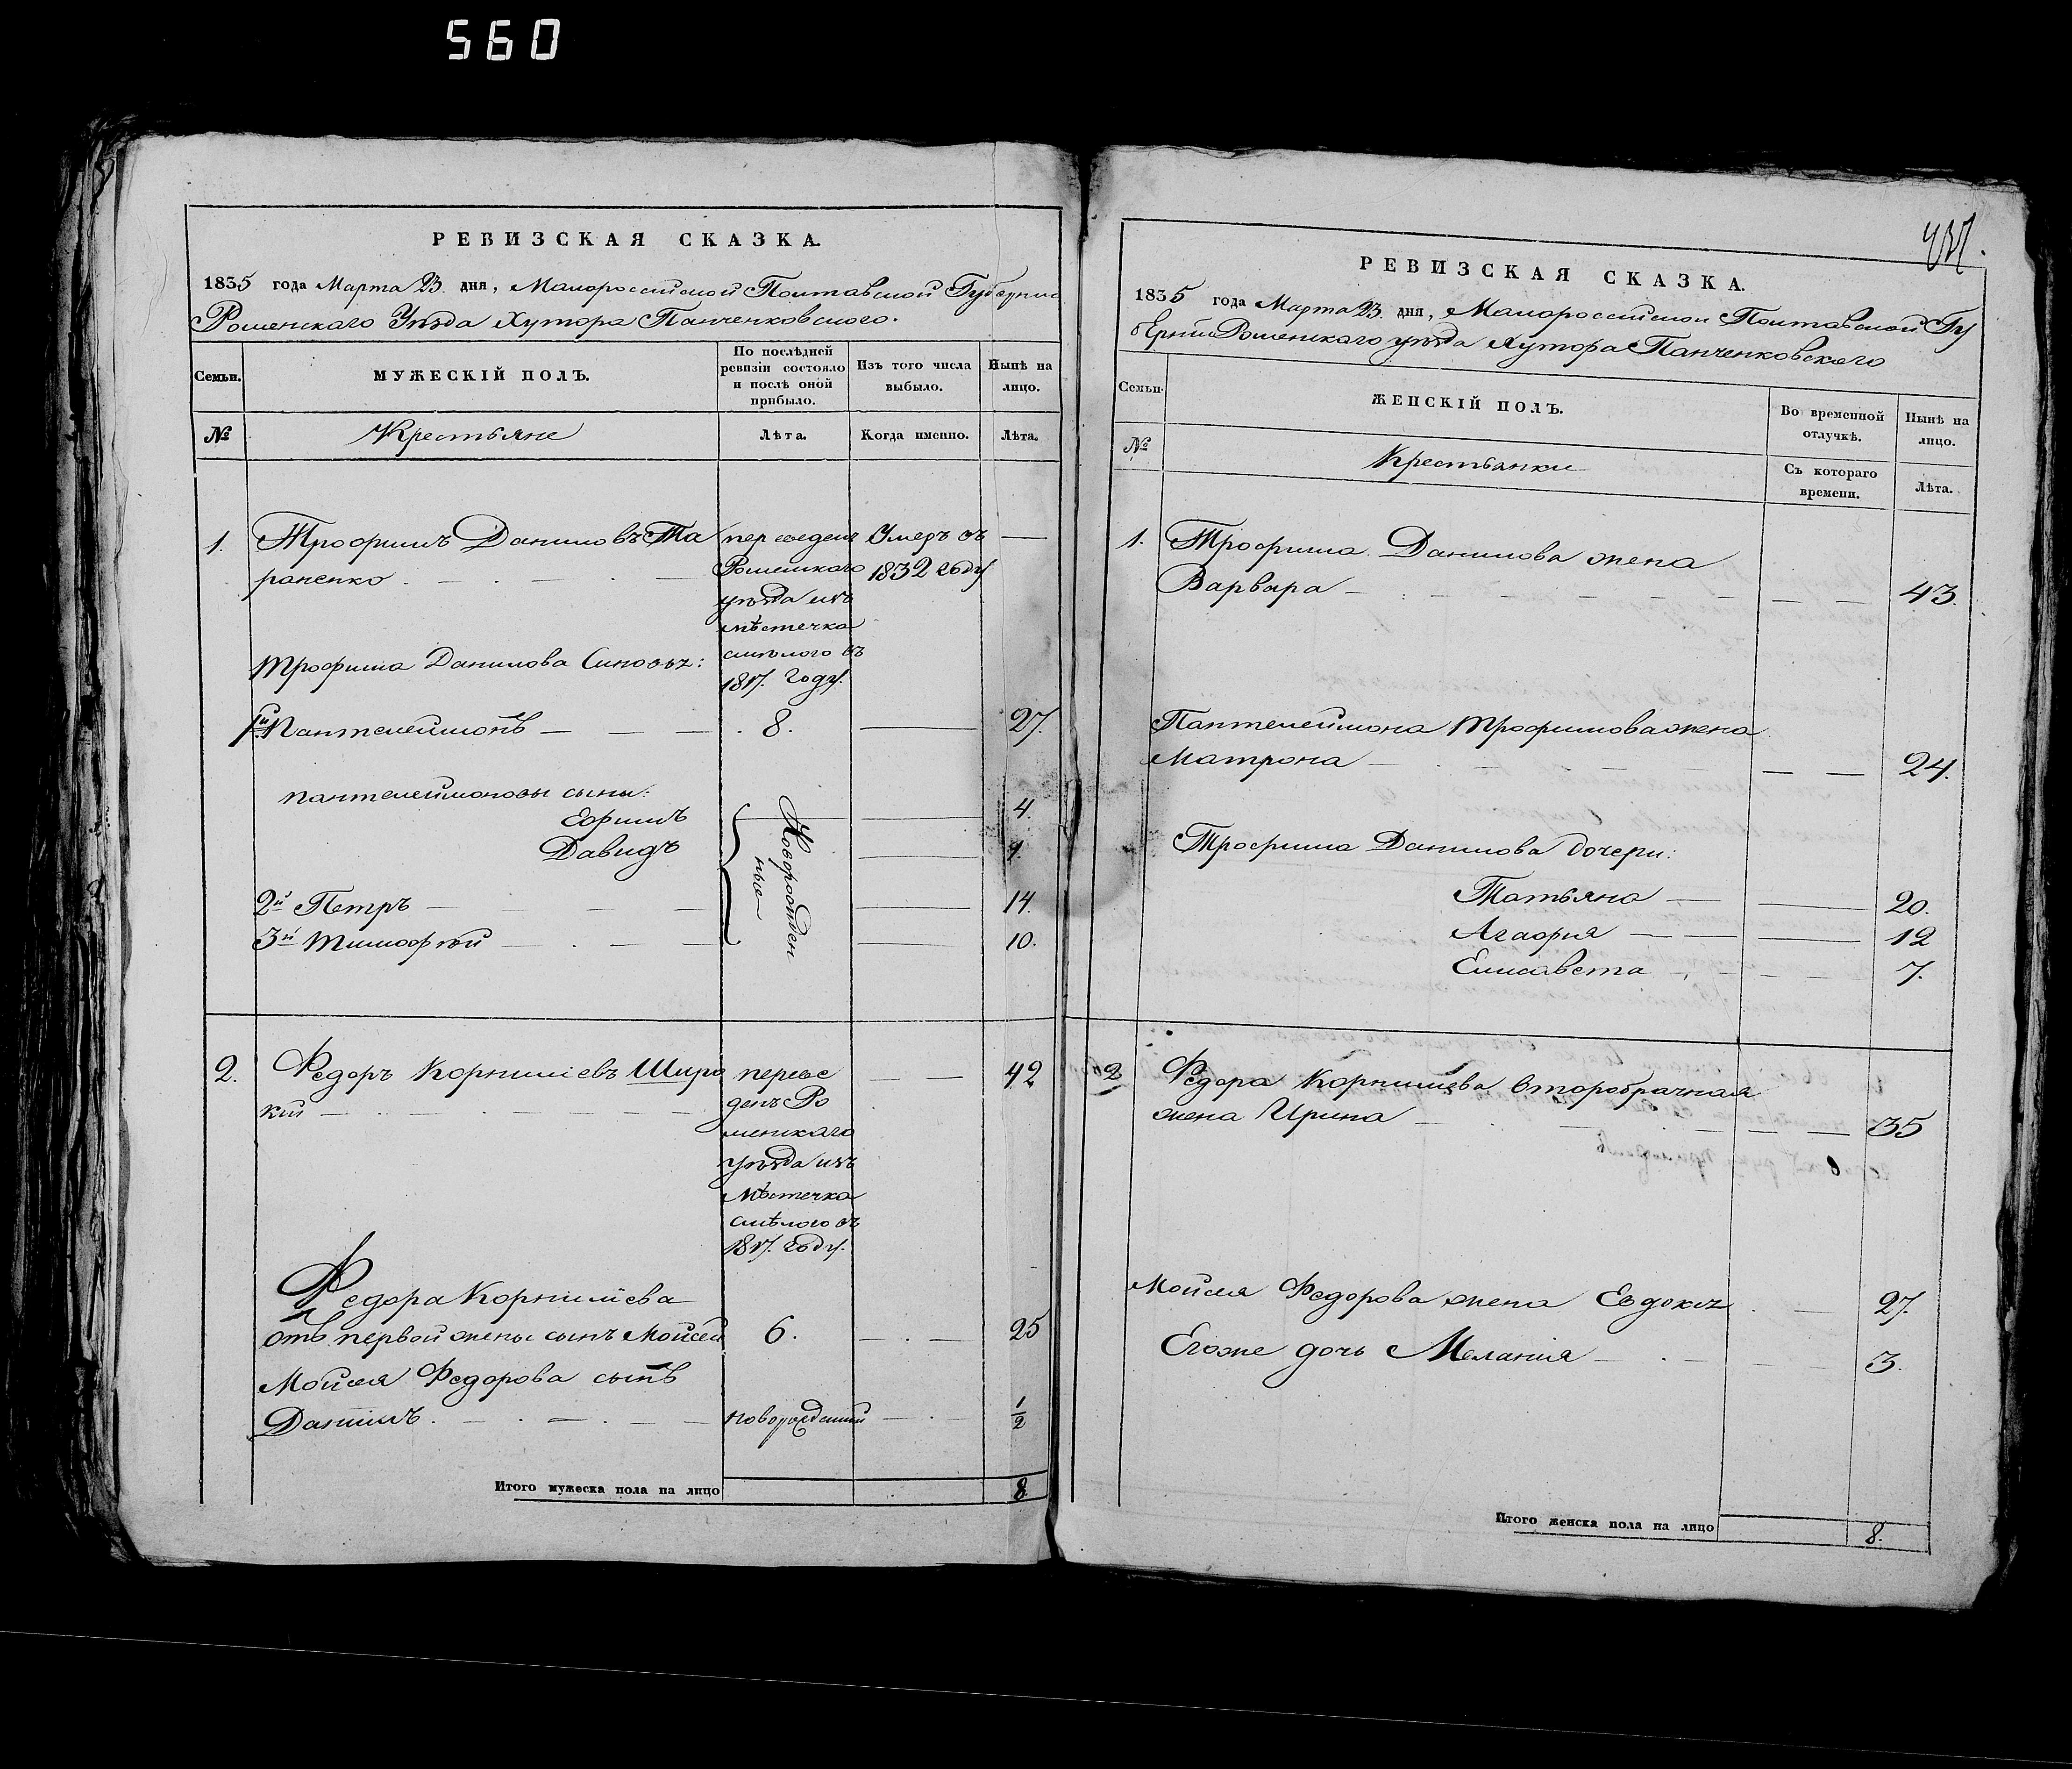 560
РЕВИЗСКАЯ СКАЗКА.
1835 года Марта 23. дня, Малороссийской Полтавской Губернии
Роменскаго Уѣзда Хутора Панченковского.
Семьи.
МУЖЕСКІЙ ПОЛЪ.
По послѣдней
ревизіи состояло
и послѣ оной
прибыло.
Изъ того числа
выбыло.
Нынѣ на
лицо.
№
Крестьяне
Лѣта.
Когда именно.
Лѣта.
1. Трофимъ Даниловъ Та
раненко
переведенъ
Роменскаго
уѣзда изъ
мѣстечка
смѣлого въ
1817. году.
Умеръ въ
1832 году
Трофима Данилова Синовъя:
1й Пантелеймонъ 8. 27.
пантелеймоновы сыны:
Ефимъ 4.
Давидъ 1.
2й Петръ 14.
3й Тимофѣй 10.
Новорожден
ные
2. Федоръ Корнилиевъ Широ
кий
переве
денъ Ро
менскаго
уѣзда изъ
Мѣстечка
смѣлого въ
1817. году.
42
Федора Корнилиева
отъ первой жены сынъ Мойсей 6. 25
Мойсея Федорова сынъ
Данилъ. новорожденный 1/2
Итого мужеска пола на лицо 8.
РЕВИЗСКАЯ СКАЗКА.
1835 года Марта 23. дня, Малороссийской Полтавской Гу
бернии Роменскаго уѣзда Хутора Панченковскаго
Семьи.
ЖЕНСКІЙ ПОЛЪ.
Во временной
отлучкѣ.
Нынѣ на
лицо.
№
Крестьянки
Съ котораго
времени.
Лѣта.
1. Трофима Данилова жена
Варвара 43.
Пантелеймона Трофимова жена
Матрона 24.
Трофима Данилова дочери:
Татьяна 20.
Агафия 12
Елисавета 7.
2 Федора Корнилиева второбрачная
жена Ирина 35
Мойсея Федорова жена 27.
Егоже дочь Мелания 3.
Итого женска пола на лицо 8.